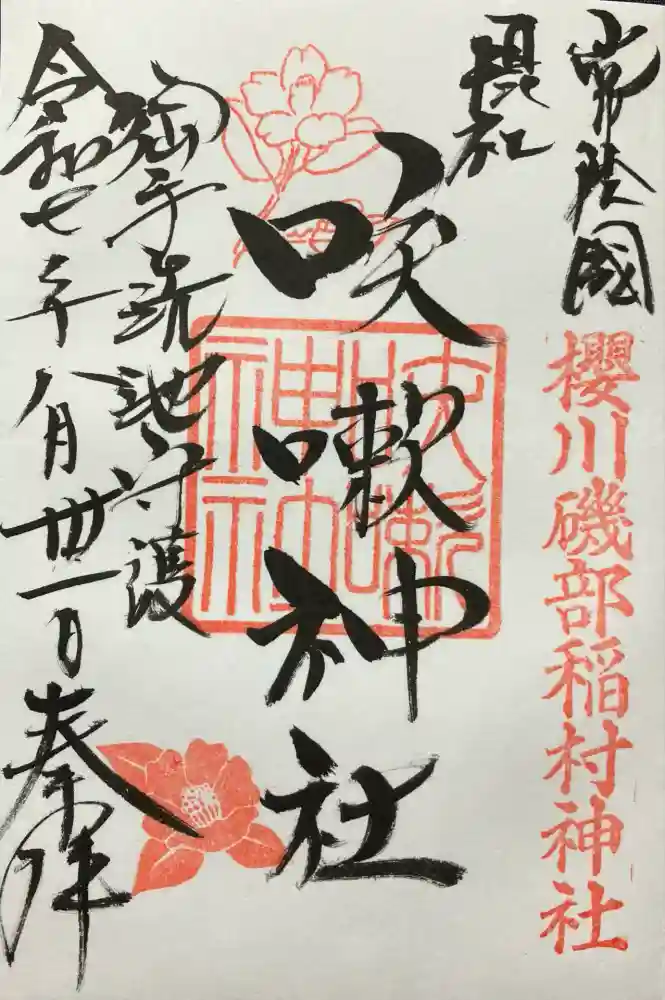 常陸國
櫻川磯部稲村神社
摂社
咲嗽神社
咲嗽
神社
手洗池守護
令和七年八月卅一日奉拝